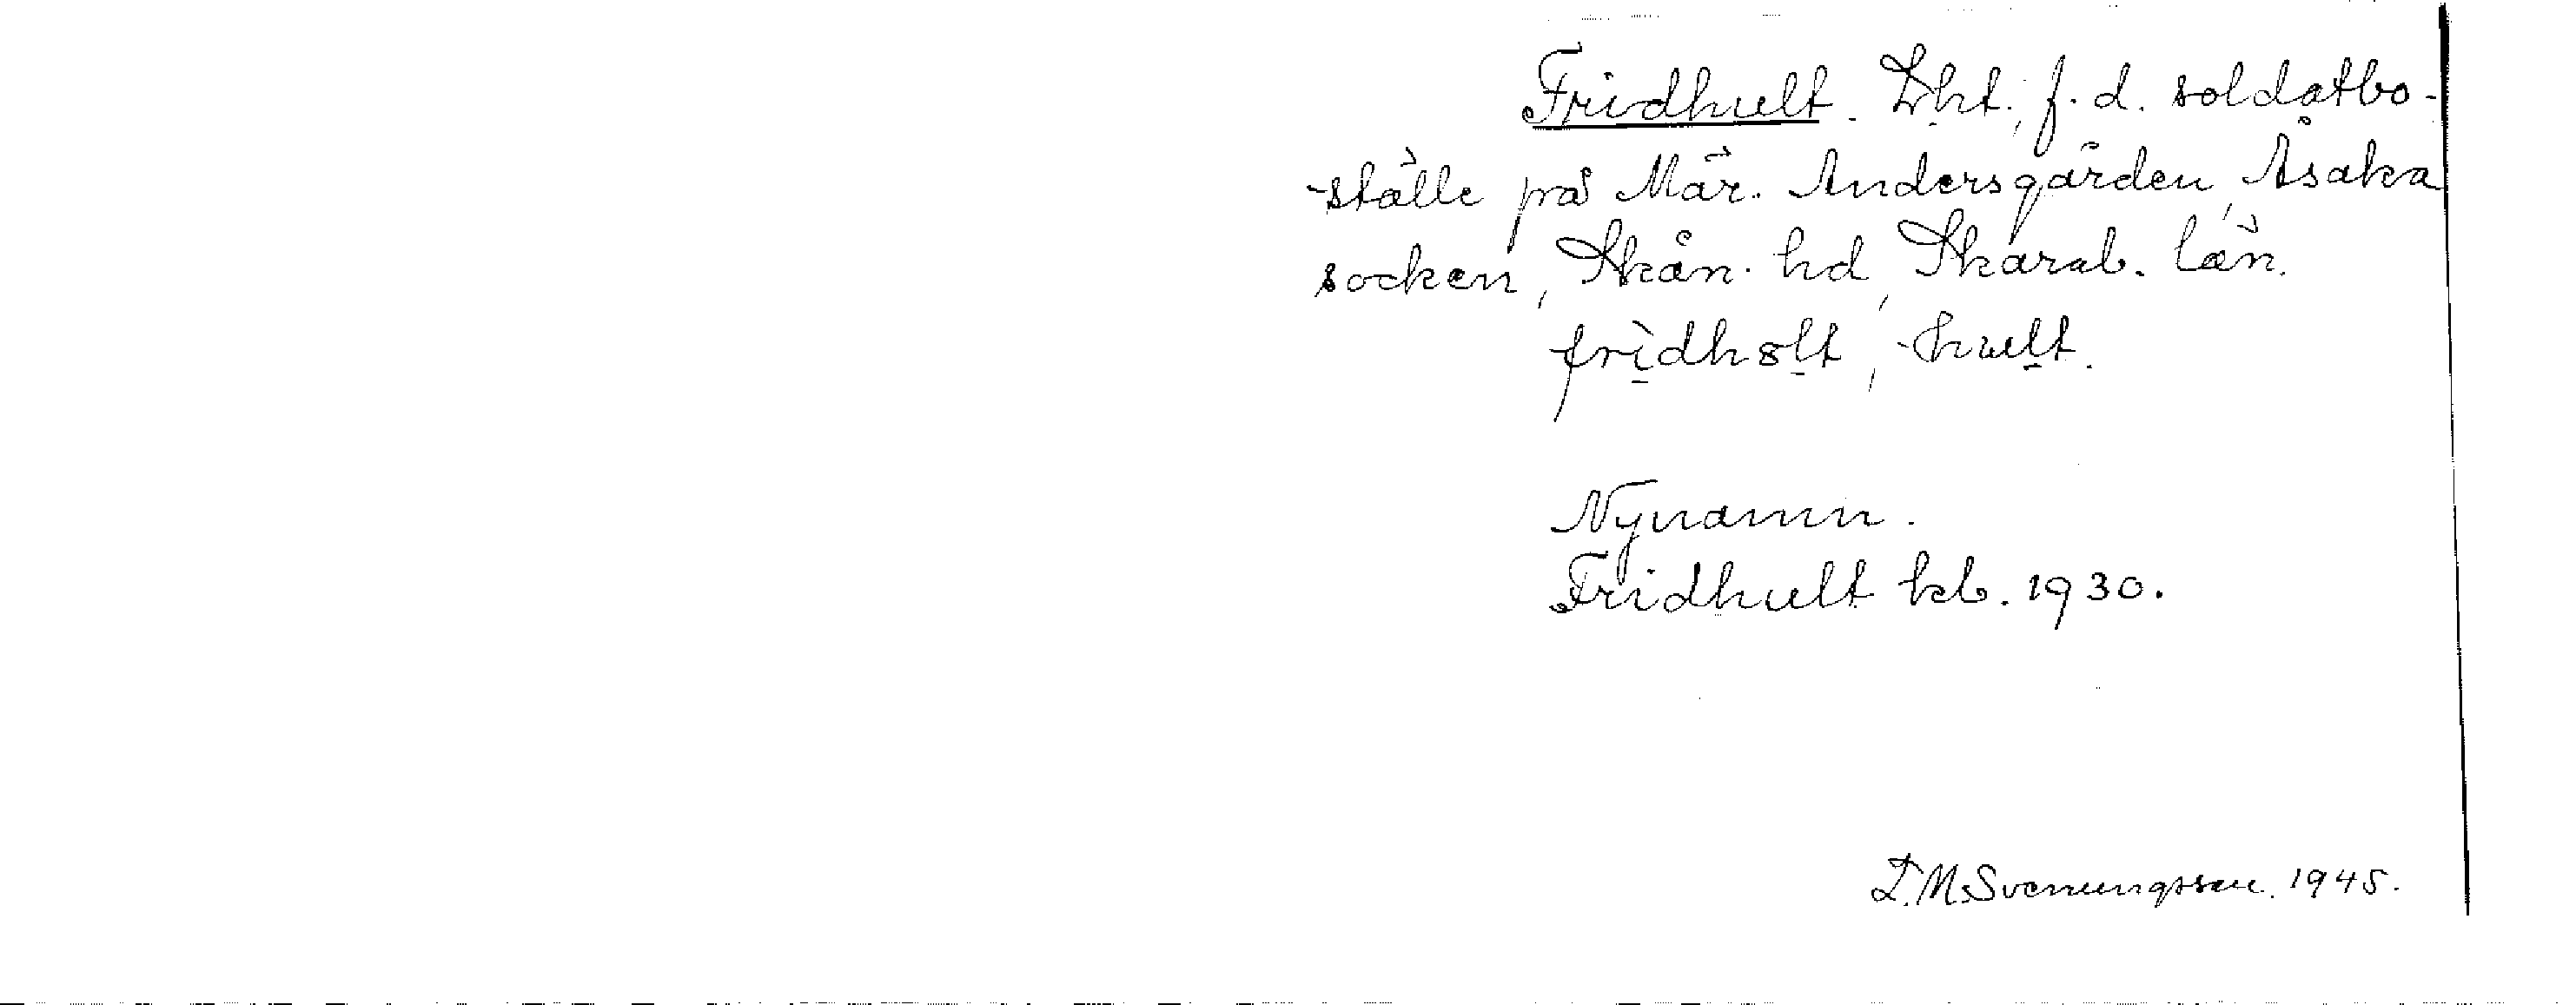 Fridhult. Lht., f. d. soldatbo-
ställe på Mär. Andersgården, Åsaka
socken, Skån. hd, Skarab. län.
fridhölt, -hult.
Nynamn.
Fridhult kb. 1930.
L. M. Svenungsson. 1945.